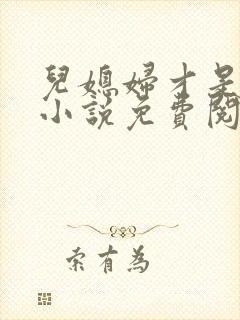 兒媳婦才是
小說免費閱
索有為